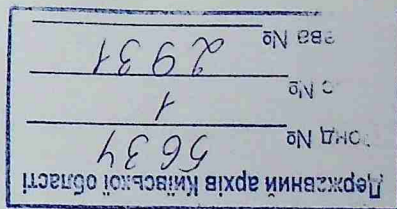 Державний архів Київської області
онд № 5634
с № 1
ава № 2931